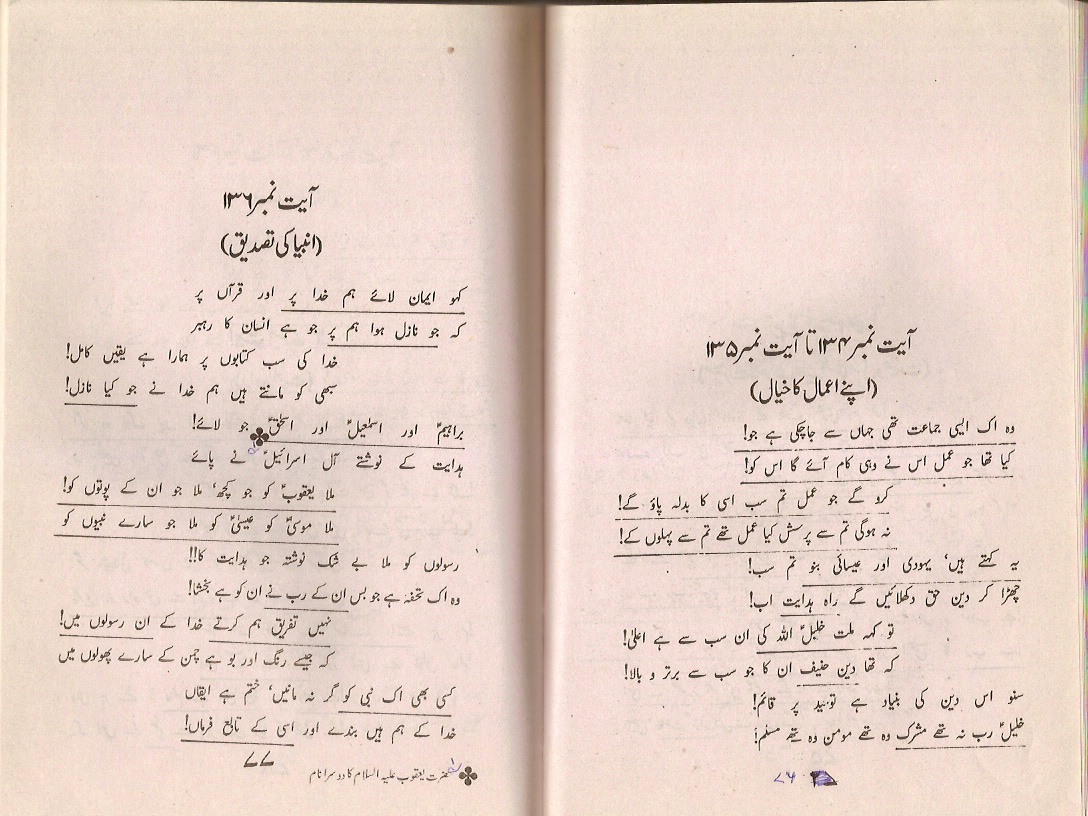 آیت نمبر ۱۳۴ تا آیت نمبر ۱۳۵
(اپنے اعمال کا خیال)
وہ اک ایسی جماعت تھی جہاں سے جاچکی ہے جو!
کیا تھا جو عمل اس نے وہی کام آئے گا اس کو!
کرو گے جو عمل تم سب اسی کا بدلہ پاؤ گے!
نہ ہوگی تم سے پرسش کیا عمل تھے تم سے پہلوں کے!
یہ کہتے ہیں' یہودی اور عیسائی بنو تم سب!
چھڑا کر دین حق دکھلائیں گے راہ ہدایت اب!
تو کہہ ملت خلیلؑ اللہ کی ان سب سے ہے اعلیٰ!
کہ تھا دین حنیف ان کا جو سب سے برتر و بالا!
سنو اس دین کی بنیاد ہے توحید پر قائم!
خلیلؑ رب نہ تھے مشرک وہ تھے مومن وہ تھے مسلم!
۷۶
آیت نمبر ۱۳۶
(انبیا کی تصدیق)
کہو ایمان لائے ہم خدا پر اور قرآں پر
کہ جو نازل ہوا ہم پر جو ہے انسان کا رہبر
خدا کی سب کتابوں پر ہمارا ہے یقیں کامل!
سبھی کو مانتے ہیں ہم خدا نے جو کیا نازل!
براہیمؑ اور اسمٰعیلؑ اور اسحٰقؑ جو لائے!
ہدایت کے نوشتے آل اسرائیلؑ نے پائے
ملا یعقوبؑ کو جو کچھ' ملا جو ان کے پوتوں کو!
ملا موسیٰؑ کو عیسیٰؑ کو ملا جو سارے نبیوں کو
رسولوں کو ملا بے شک نوشتہ جو ہدایت کا!!
وہ اک تحفہ ہے جو بس ان کے رب نے ان کو ہے بخشا!
نہیں تفریق ہم کرتے خدا کے ان رسولوں میں!
کہ جیسے رنگ اور بو ہے چمن کے سارے پھولوں میں
کسی بھی اک نبی کو گر نہ مانیں' ختم ہے ایقاں
خدا کے ہم ہیں بندے اور اسی کے تابع فرماں!
۷۷
حضرت یعقوب علیہ السلام کا دوسرا نام